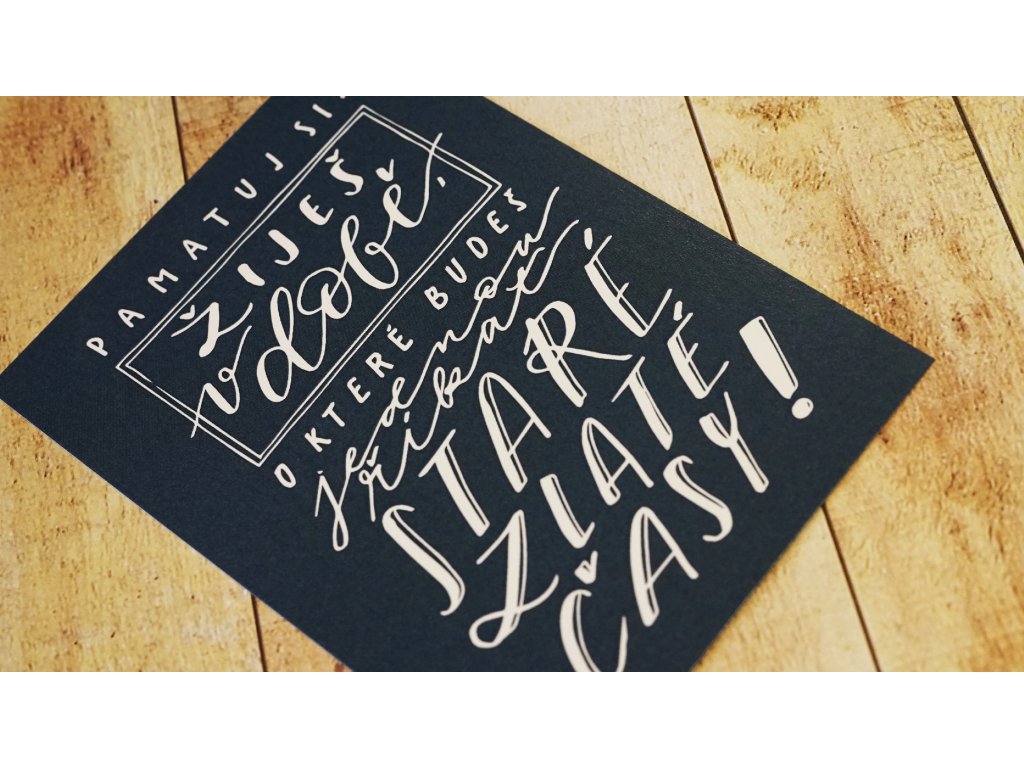 PAMATUJ SI,
ŽIJEŠ
v době,
O KTERÉ BUDEŠ
jednou
říkat
STARÉ
ZLATÉ
ČASY!